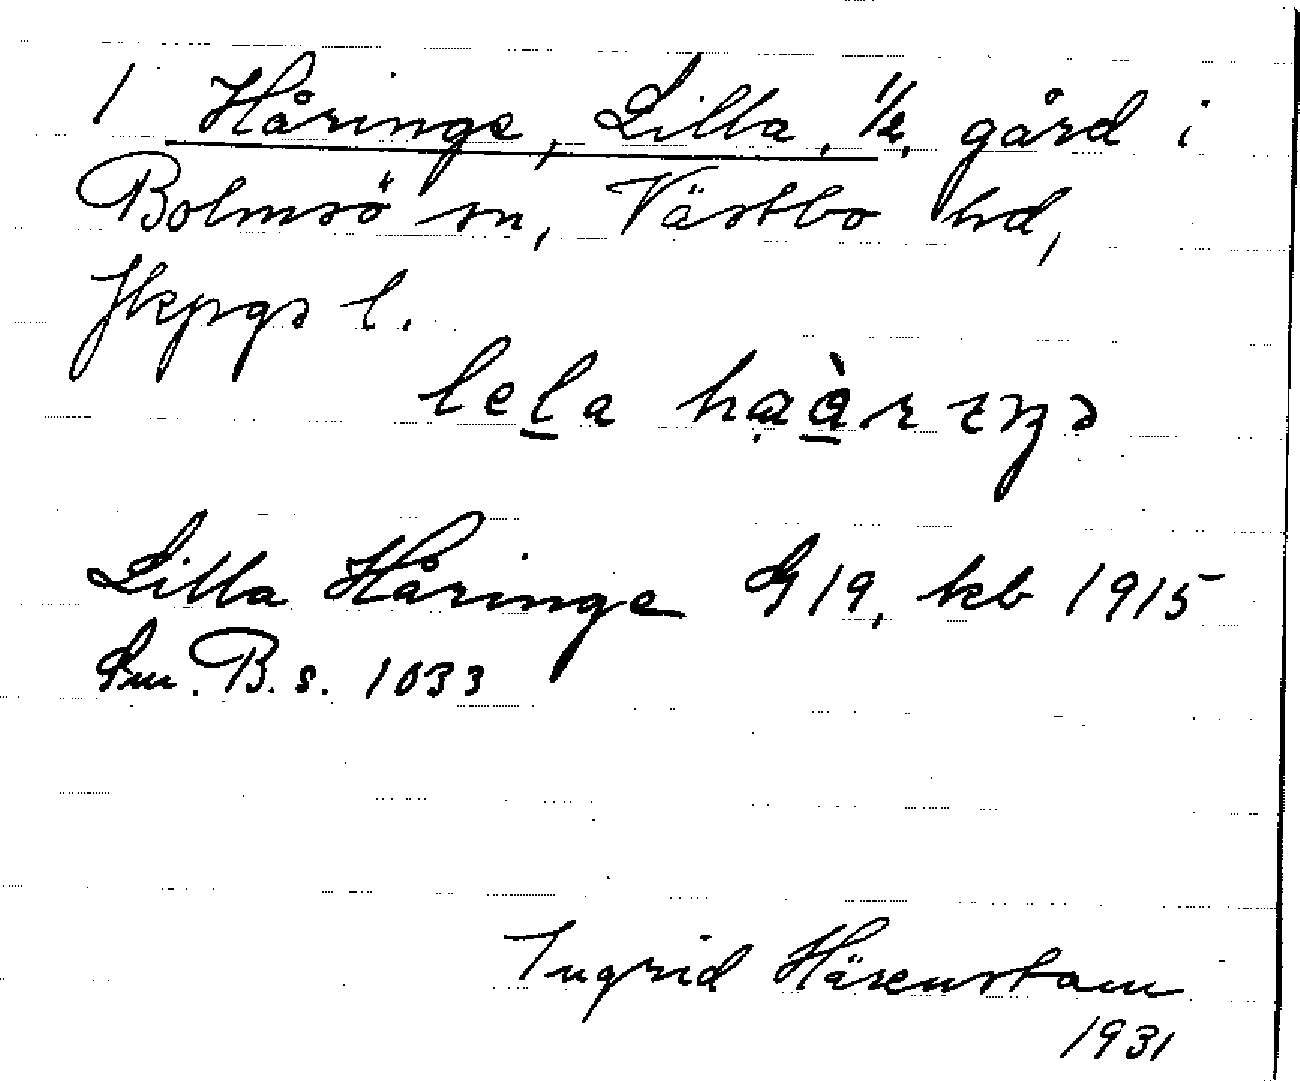 1 Håringe, Lilla, 1/2, gård i
Bolmsö sn, Västbo hd,
Jkpgs l.
lela
Lilla Håringe G 19, kb 1915
Sm. B. s. 1033
Ingrid Härenstam
1931